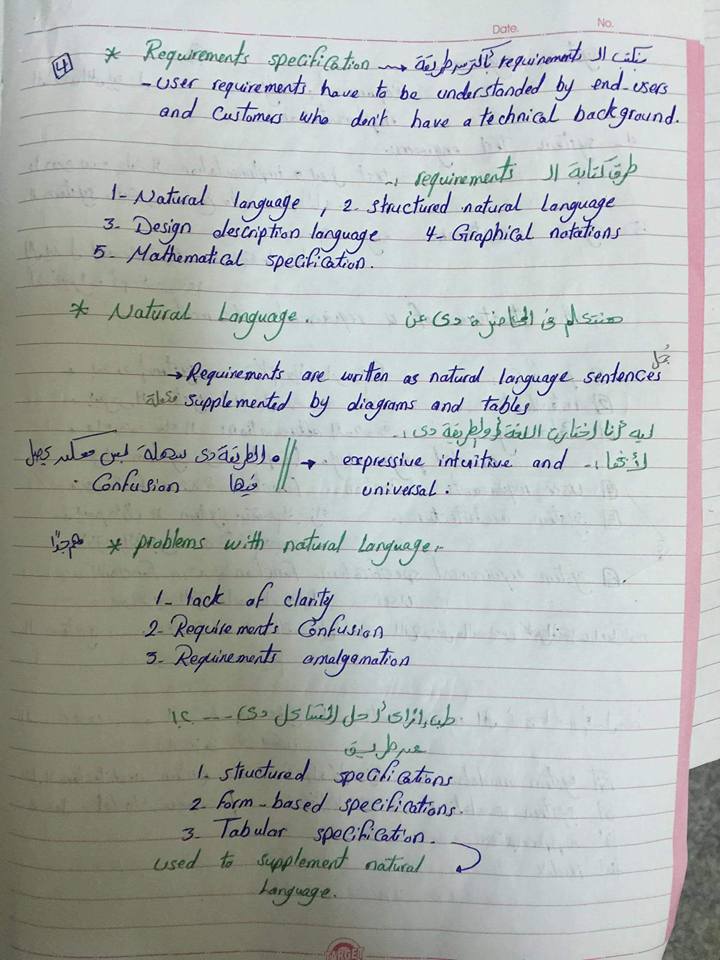 Date. No.
4
* Requirements specification → بنكتب ال requirements بأكثر من طريقة
- user requirements have to be understanded by end-users
and customers who don't have a technical background.
طرق كتابة ال requirements :-
1- Natural language , 2- structured natural Language
3- Design description language 4- Graphical notations
5- Mathematical specification.
* Natural Language. هنتكلم فى المحاضرة دى عن
جُمل
→ Requirements are written as natural language sentences
supplemented by diagrams and tables مكملة
ليه أنا اختارت اللغة أو الطريقة دى.
→ expressive intuitive and لأنها :-
universal.
الطريقة دى سهلة بس ممكن يحصل
فيها Confusion.
* problems with natural Language:- مهم جدًا
1- lack of clarity
2- Requirements Confusion
3- Requirements amalgamation
طب إزاى أحل المشاكل دى ---
عن طريق
1- structured specifications
2- form-based specifications.
3- Tabular specification.
used to supplement natural
Language.
TARGET